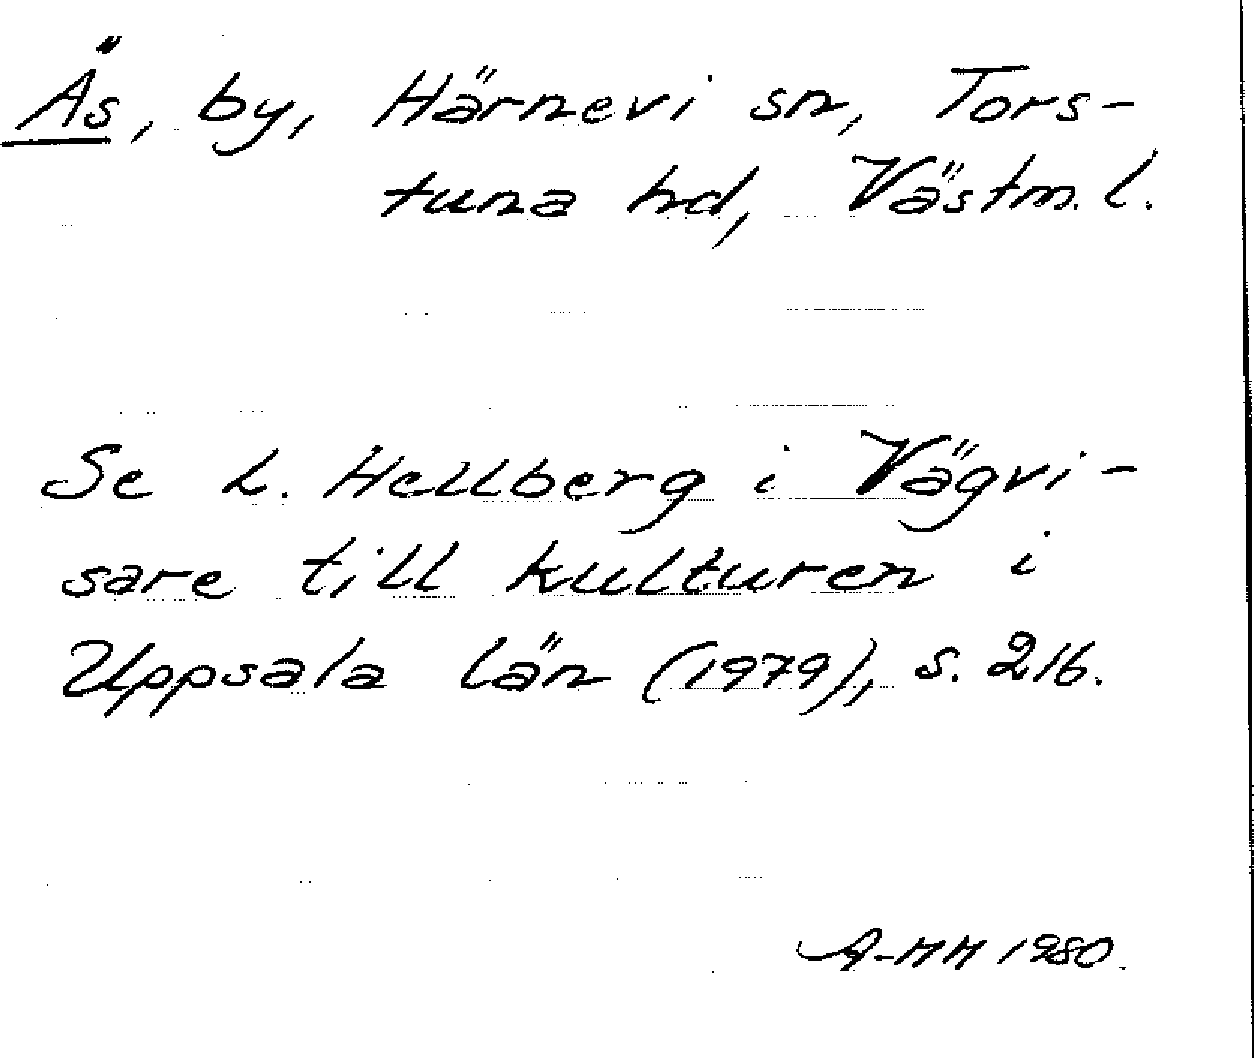 Ås, by, Härnevi sn, Tors-
tuna hd, Västm. l.
Se L. Hellberg i Vägvi-
sare till kulturen i
Uppsala län (1979), s. 216.
A-MH 1980.